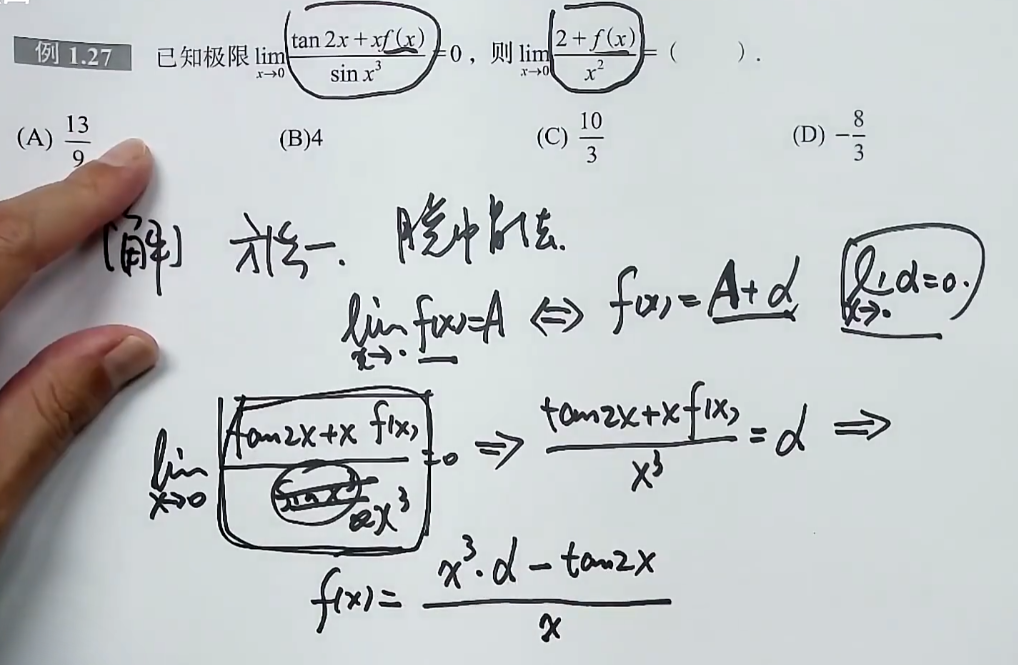 例 1.27 已知极限 lim x→0 (tan 2x + xf(x))/(sin x³) = 0，则 lim x→0 (2 + f(x))/x² = (　　).
(A) 13/9 (B)4 (C) 10/3 (D) −8/3
[解] 方法一. 脱帽法.
lim x→· f(x)=A ⇔ f(x)=A+α lim x→· α=0.
lim x→0 (tan2x+x f(x))/x³ =0 ⇒ (tan2x+x f(x))/x³ = α ⇒
f(x)= (x³·α − tan2x)/x